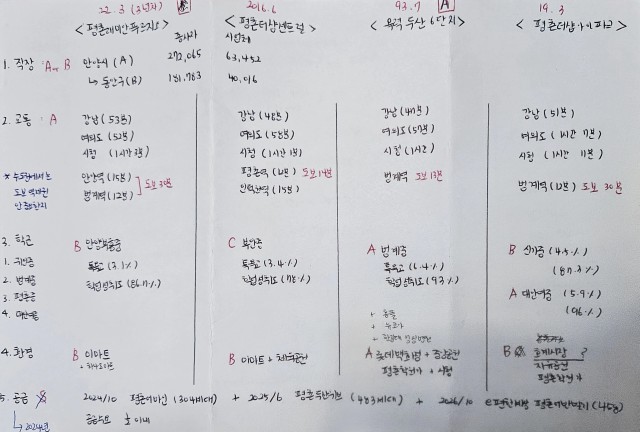 22.3 (3년차)
<평촌래미안푸르지오>
2016.6
<평촌더샵센트럴>
93.7 A
<목련 두산 6단지>
19.3
<평촌더샵아이파크>
종사자
사업체
1. 직장 : A or B 안양시 (A) 272,065 63,452
↳ 동안구 (B) 181,783 40,016
2. 교통 : A
강남 (53분)
여의도 (52분)
시청 (1시간 2분)
안양역 (15분)
범계역 (12분)
도보 30분
강남 (48분)
여의도 (58분)
시청 (1시간 1분)
평촌역 도보 14분
인덕원역 (15분)
강남 (47분)
여의도 (57분)
시청 (1시간)
범계역 도보 13분
강남 (51분)
여의도 (1시간 7분)
시청 (1시간 11분)
범계역 (12분) 도보 30분
* 수도권에서는
도보 역세권
3. 학군
1. 귀인중
2. 범계중
3. 평촌중
4. 대안여중
B
특목고 (3.1%)
학업성취도 (86.7%)
C 부안중
특목고 (3.4%)
학업성취도 (78%)
A 범계중
특목고 (6.4%)
학업성취도 (93%)
B 신기중 (4.5%)
(87.3%)
A 대안여중 (5.9%)
(96%)
4. 환경
B 이마트
B 이마트 +
+ 홈플
+ 뉴코아
A 롯데백화점 + 중앙공원
평촌학원가 + 시청
B
호계시장 ?
자유공원
평촌학원가
5. 공급
↳ 2024년
2024/10 평촌 (304세대) + 2025/6 평촌두산위브 (483세대) + 2026/10 e편한세상 평촌 (458)
공급수요